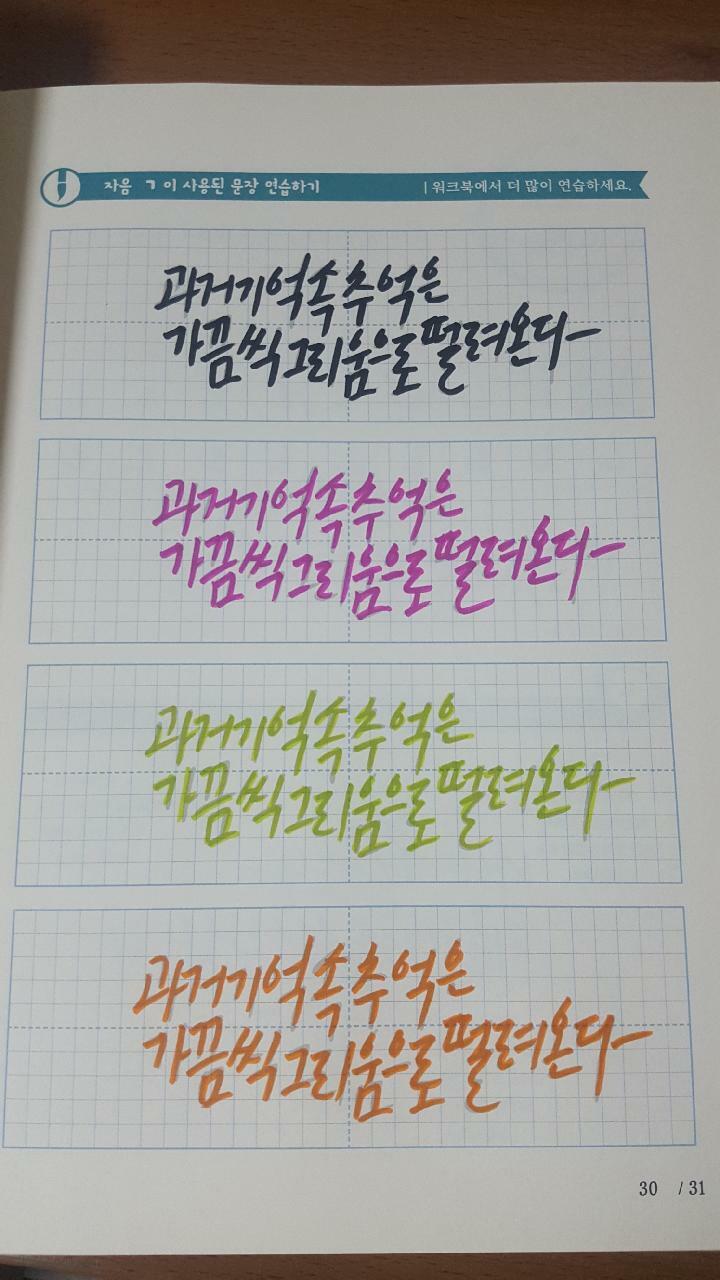 자음 ㄱ이 사용된 문장 연습하기
| 워크북에서 더 많이 연습하세요.
과거기억속추억은
가끔씩그리움으로떨려온다
과거기억속추억은
가끔씩그리움으로떨려온다
과거기억속추억은
가끔씩그리움으로떨려온다
과거기억속추억은
가끔씩그리움으로떨려온다
30 / 31